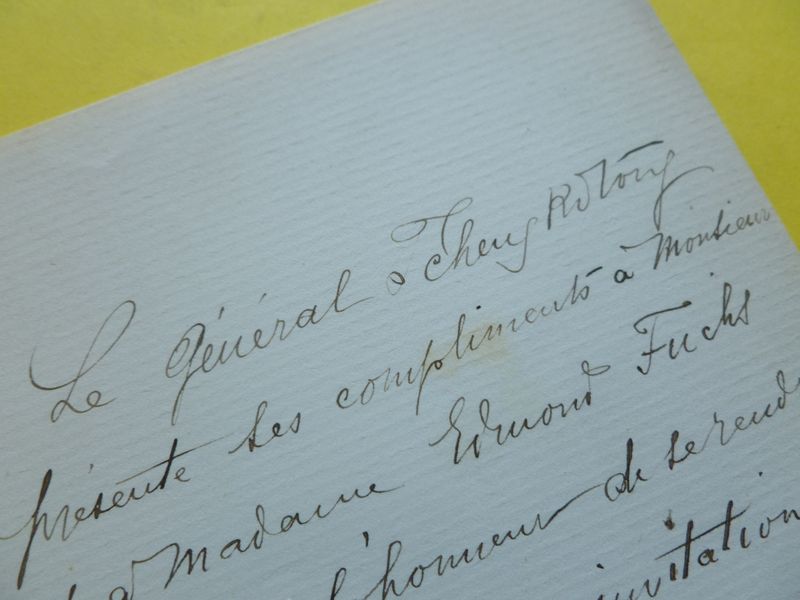 Le Général Tcheng Ki Tong
présente ses compliments à Monsieur
à Madame Edmond Fuchs
l'honneur de se rend
invitation